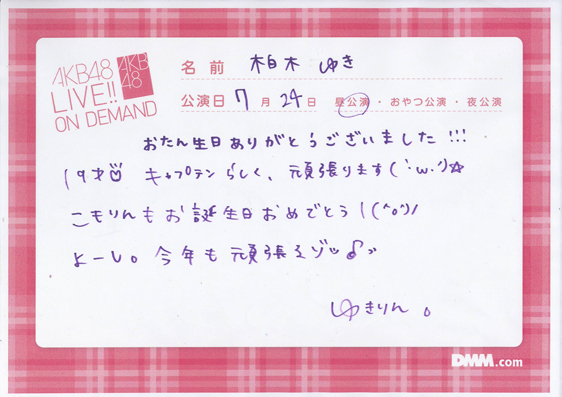 AKB48
LIVE!!
ON DEMAND
AKB
48
名前 柏木 ゆき
公演日 7月24日 昼公演・おやつ公演・夜公演
おたん生日ありがとうございました!!!
19才 キャプテンらしく、頑張ります(`・ω・´)☆
こもりんもお誕生日おめでとう!(^o^)/
よーし。今年も頑張るゾッ♪ッ
ゆきりん。
DMM.com